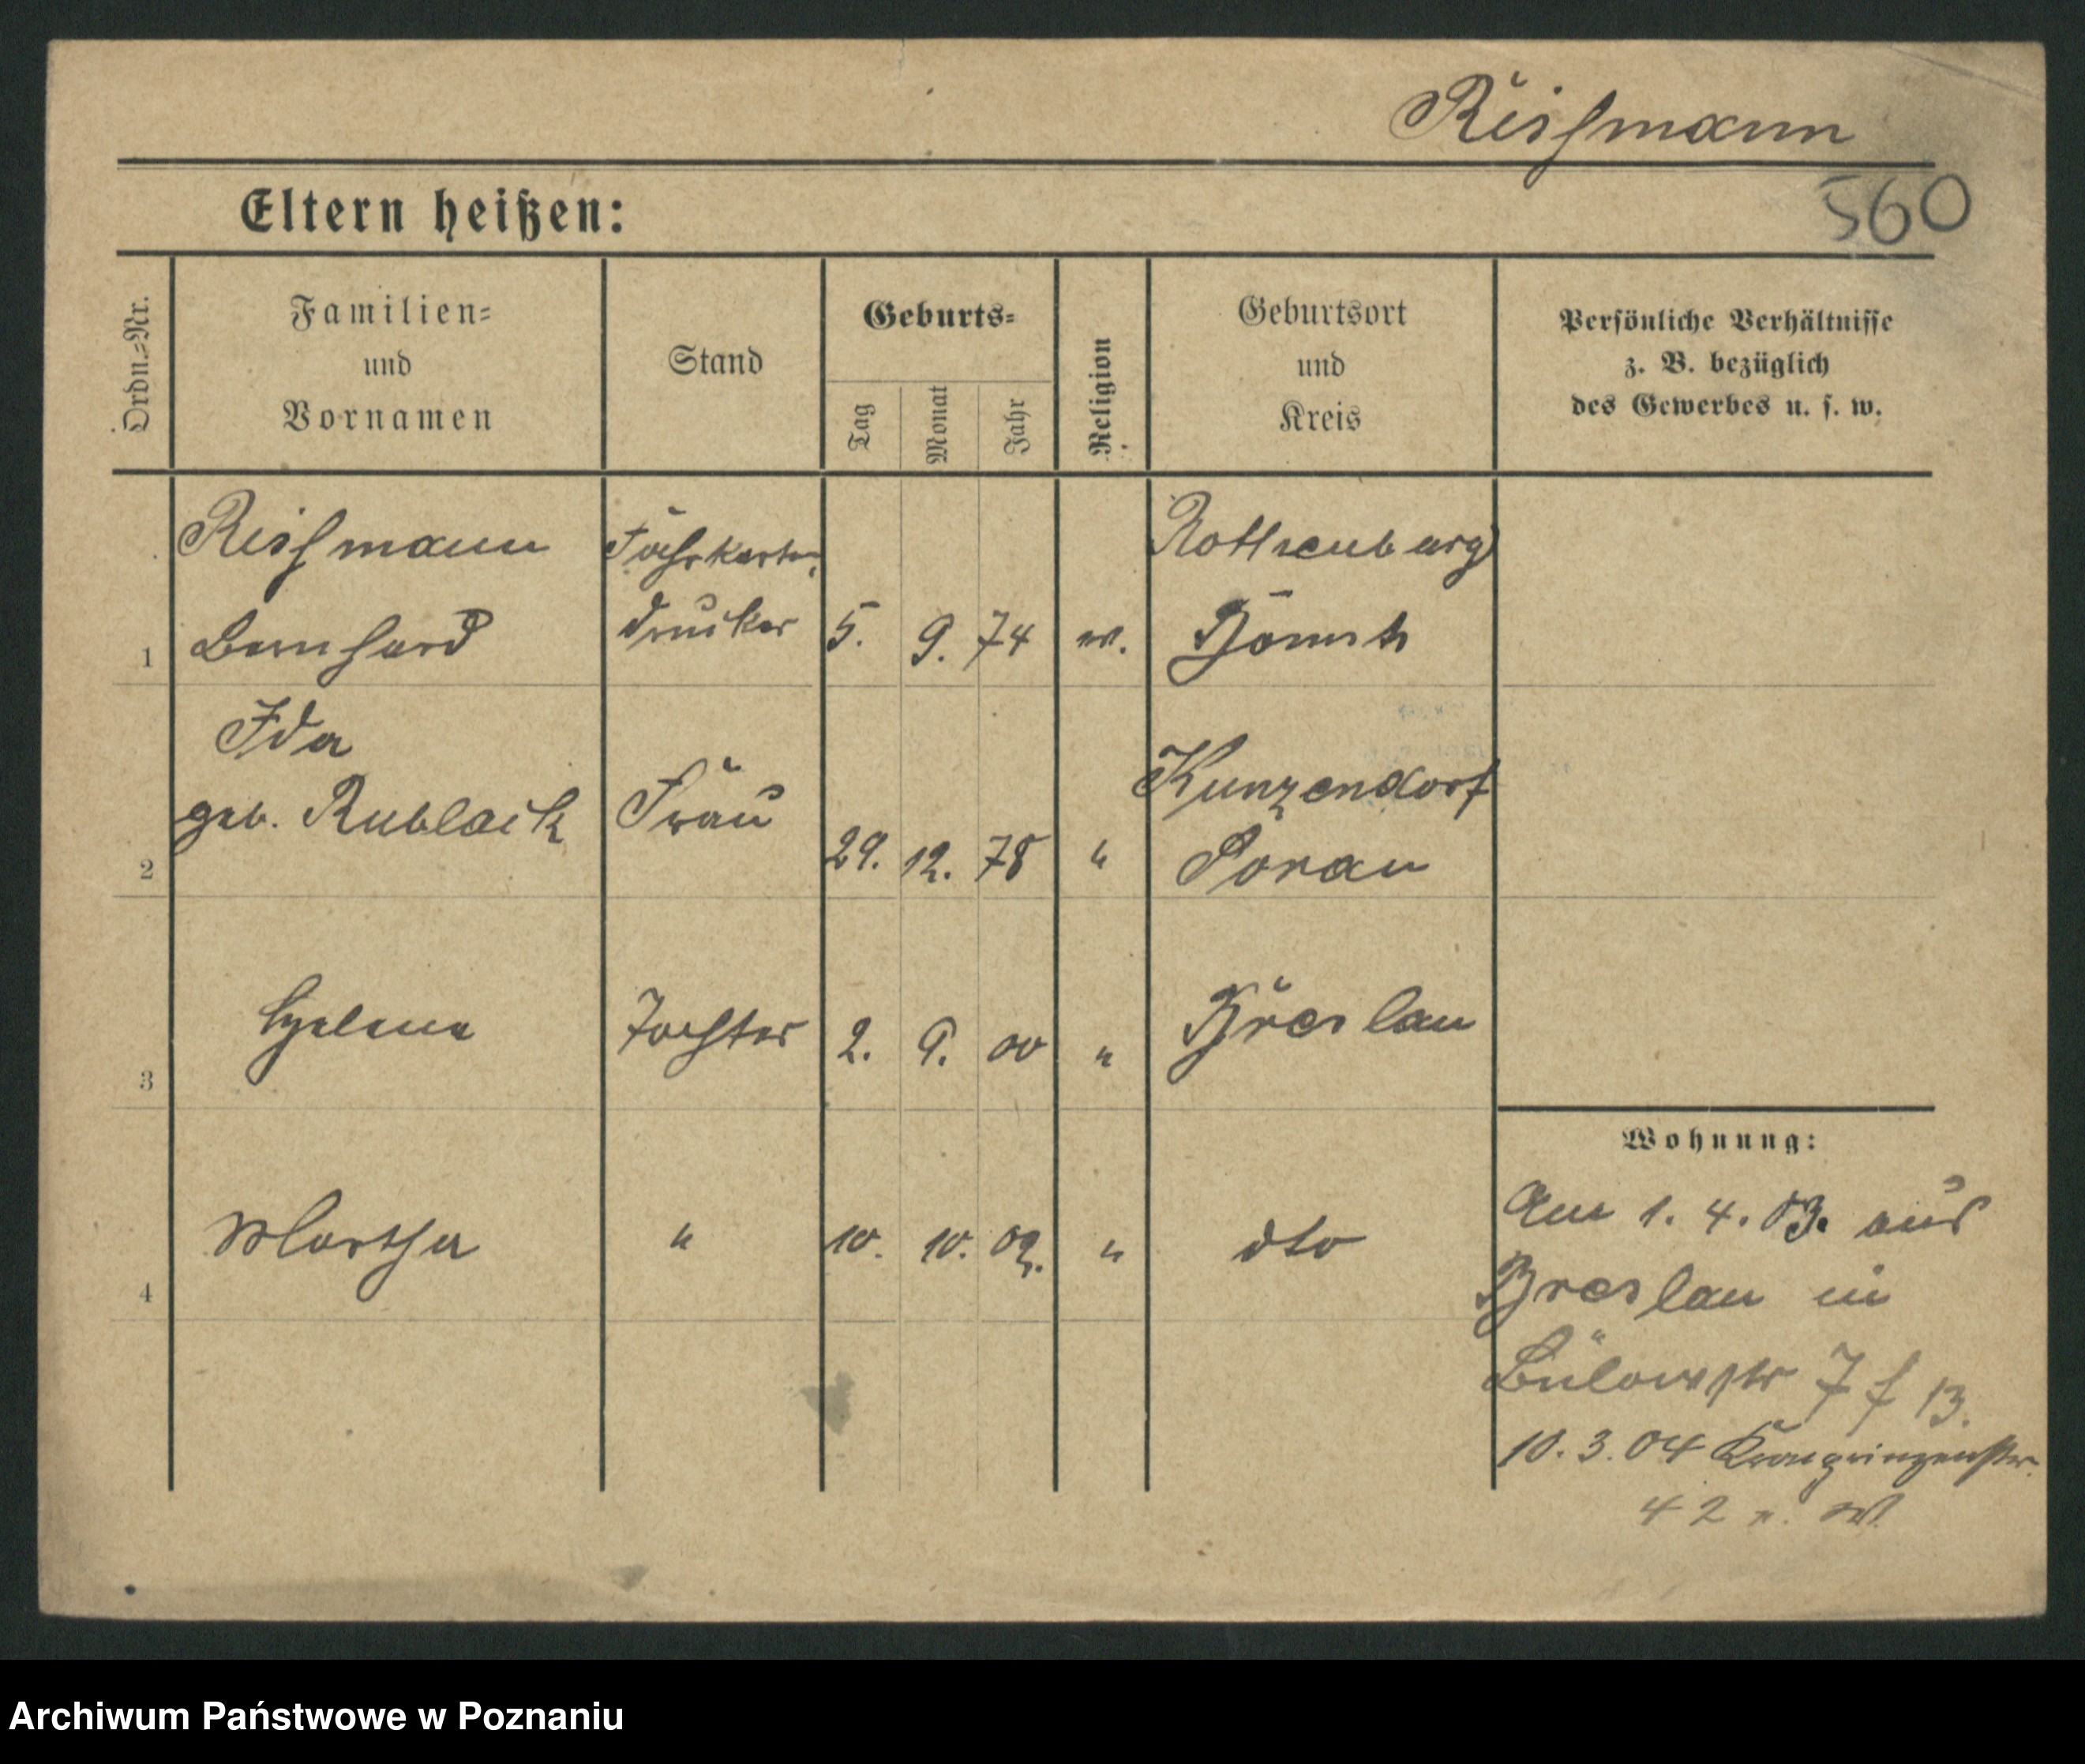 Reißmann
560
Eltern heißen:
Ordn.-Nr.
Familien-
und
Vornamen
Stand
Geburts-
Tag
Monat
Jahr
Religion
Geburtsort
und
Kreis
Persönliche Verhältnisse
z. B. bezüglich
des Gewerbes u. s. w.
1
Reißmann
Bernhard
Fahrkarten
drucker
5. 9. 74
ev.
Rothenburg
Bomst
2
Ida
geb. Rublack
Frau
29. 12. 78
"
Kunzendorf
Sorau
3
Helene
Tochter
2. 9. 00
"
Breslau
4
Martha
"
10. 10. 02.
"
dto
Wohnung:
Am 1. 4. 03. aus
Breslau in
Bülowstr 7 f 13.
10. 3. 04 Kronprinzenstr.
42